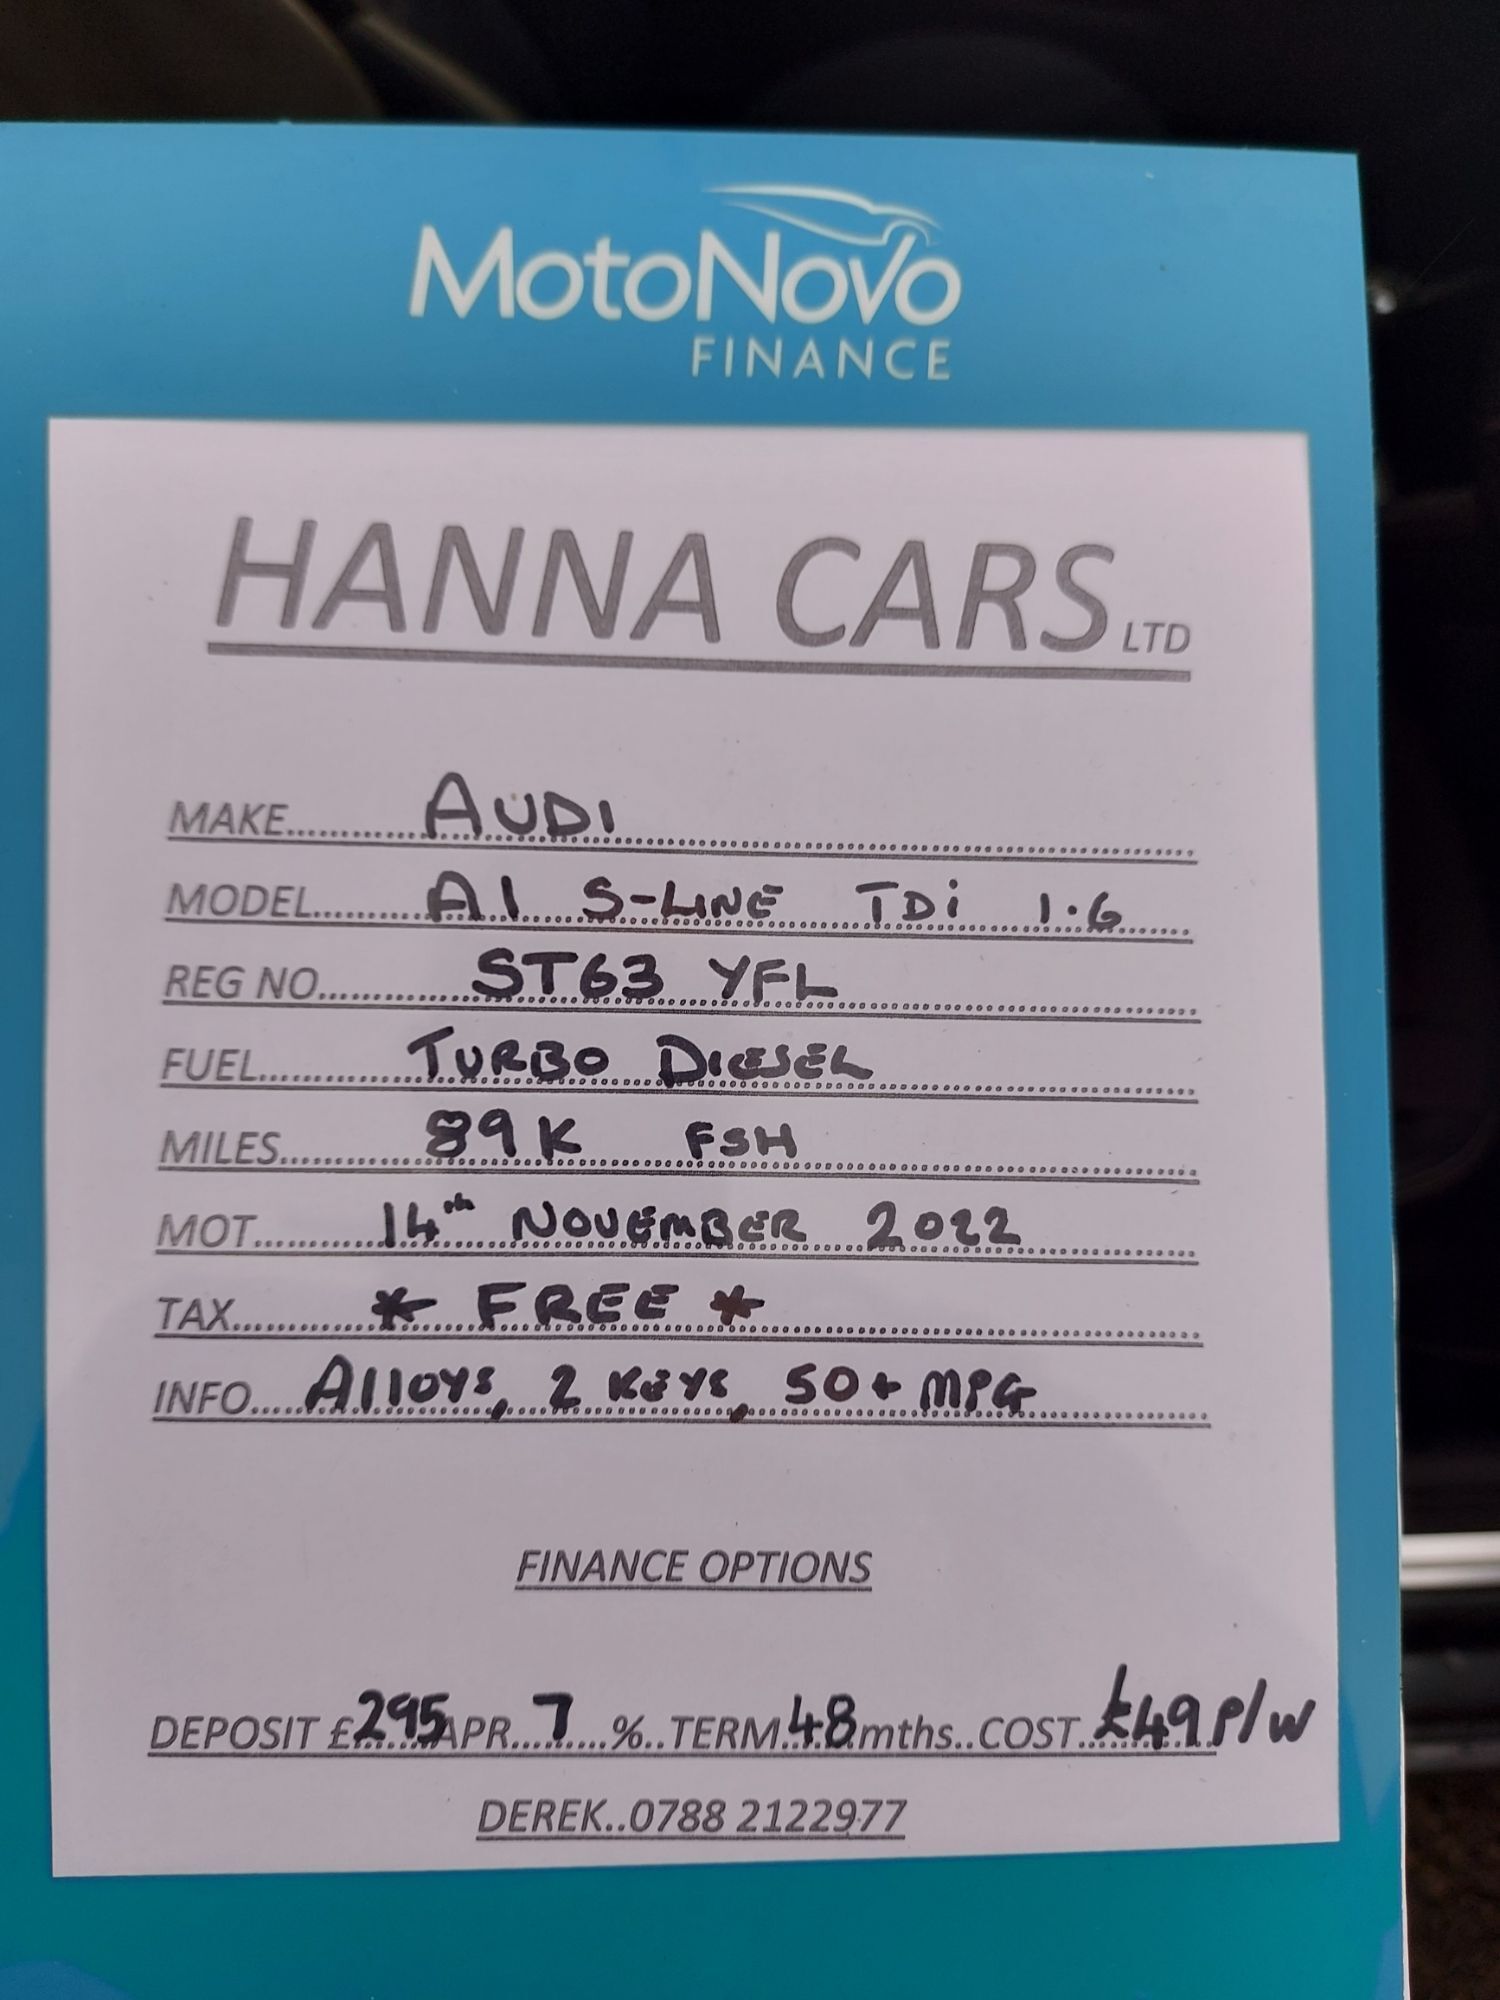 MotoNovo
FINANCE
HANNA CARS LTD
MAKE.......AUDI.......
MODEL.......A1 S-LINE TDi 1.6.......
REG NO.......ST63 YFL.......
FUEL.......TURBO DIESEL.......
MILES.......89K FSH.......
MOT.......14th NOVEMBER 2022.......
TAX.......* FREE *.......
INFO.......Alloys, 2 KEYS, 50+ MPG.......
FINANCE OPTIONS
DEPOSIT £295 APR...7....%..TERM.48 mths..COST.£49 P/W
DEREK..0788 2122977